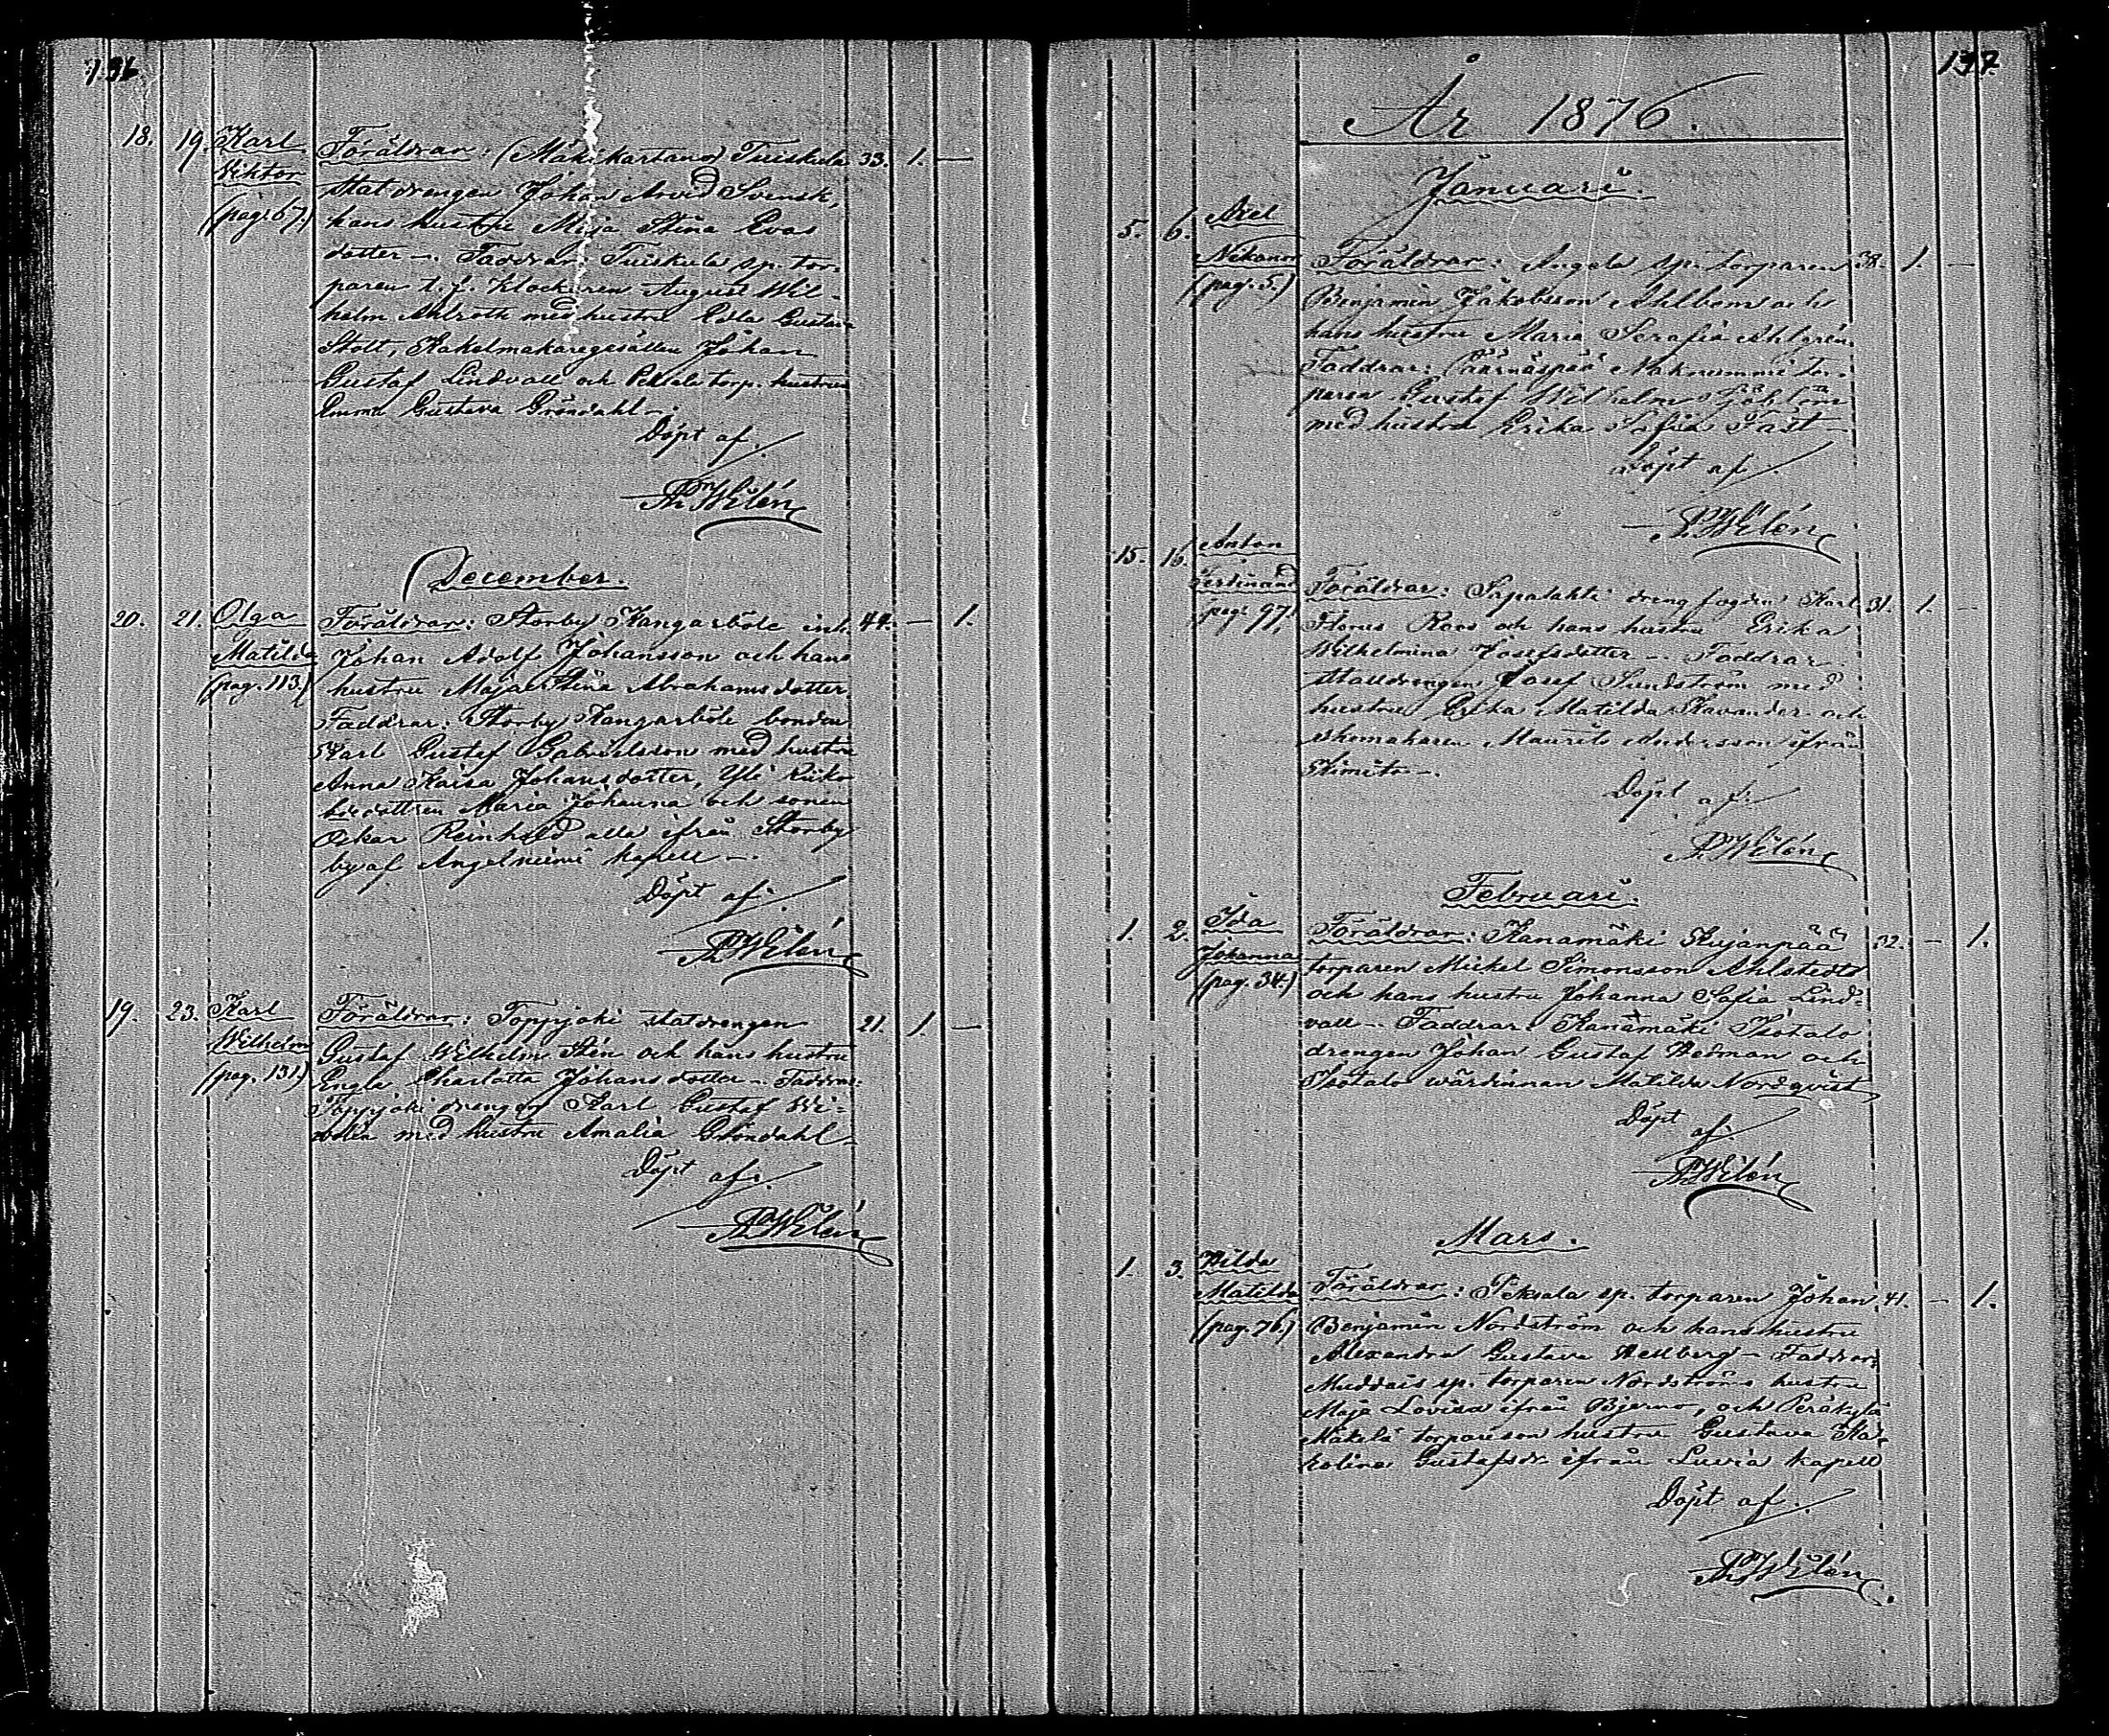 136
18. 19. Karl Föräldrar: (Mäkikartano) Tuiskula 33. 1. —
Viktor statdrengen Johan Arvid Svensk,
(pag. 67.) hans hustru Maja Stina Evas
dotter —. Faddrar: Tuiskula sp. tor-
paren t. f. klockaren August Wil-
helm Ahlroth med hustru Edla Gustava
Stolt, Kakelmakaregesällen Johan
Gustaf Lindvall och Peksala torp. hustrun
Emma Gustava Gröndahl —.
Döpt af:
Wilén
December.
20. 21. Olga Föräldrar: Storby Kangarböle inh. 44. — 1.
Matilda Johan Adolf Johansson och hans
(pag. 113.) hustru Maja Stina Abrahamsdotter.
Faddrar: Storby Kangarböle bonden
Karl Gustaf Gabrielsson med hustru
Anna Kaisa Johansdotter, Yli
dottren Maria Johanna och sonen
Oskar Reinhold alla ifrån Storby
by af Angelniemi kapell —.
Döpt af:
Wilén
19. 23. Karl Föräldrar: Toppjoki statdrengen 21. 1. —
Wilhelm Gustaf Wilhelm Stén och hans hustru
(pag. 131.) Engla Charlotta Johansdotter —. Faddrar:
Toppjoki drengen Karl Gustaf
med hustru Amalia Gröndahl —
Döpt af:
Wilén
137.
År 1876.
Januari.
5. 6. Axel
Nikanor Föräldrar: Angela sp. torparen 38. 1. —
(pag. 5.) Benjamin Jakobsson Ahlbom och
hans hustru Maria Serafia Ahlgrén.
Faddrar: Nahnummi tor-
paren Gustaf Wilhelm Sjöblom
med hustru Erika Sofia Fast —
Döpt af
Wilén
15. 16. Anton
Ferdinand Föräldrar: Sapalahti drengfogden Karl 31. 1. —
(pag. 97.) Florus Roos och hans hustru Erika
Wilhelmina Josefsdotter —. Faddrar:
stalldrengen Josef Sundström med
hustru Erika Matilda Kavander och
skomakaren Maurits Andersson ifrån
Kimito —.
Döpt af:
Wilén
Februari.
1. 2. Ida Föräldrar: Kanamäki Kujanpää 32. — 1.
Johanna torparen Mickel Simonsson Ahlstedt
(pag. 34.) och hans hustru Johanna Sofia Lind-
vall —. Faddrar: Kanamäki Isotalo
drengen Johan Gustaf Hedman och
Isotalo wärdinnan Matilda Nordqvist
Döpt af:
Wilén
Mars.
1. 3. Hilda
Matilda Föräldrar: Peksala sp. torparen Johan 41. — 1.
(pag. 76.) Benjamin Nordström och hans hustru
Alexandra Gustava Hellberg — Faddrar:
Muddais sp. torparen Nordströms hustru
Maja Lovisa ifrån Bjerno, och Peräkylä
Mäkilä torpareson hustru Gustava Ka-
rolina Gustafsdr ifrån Luvia kapell
Döpt af:
Wilén